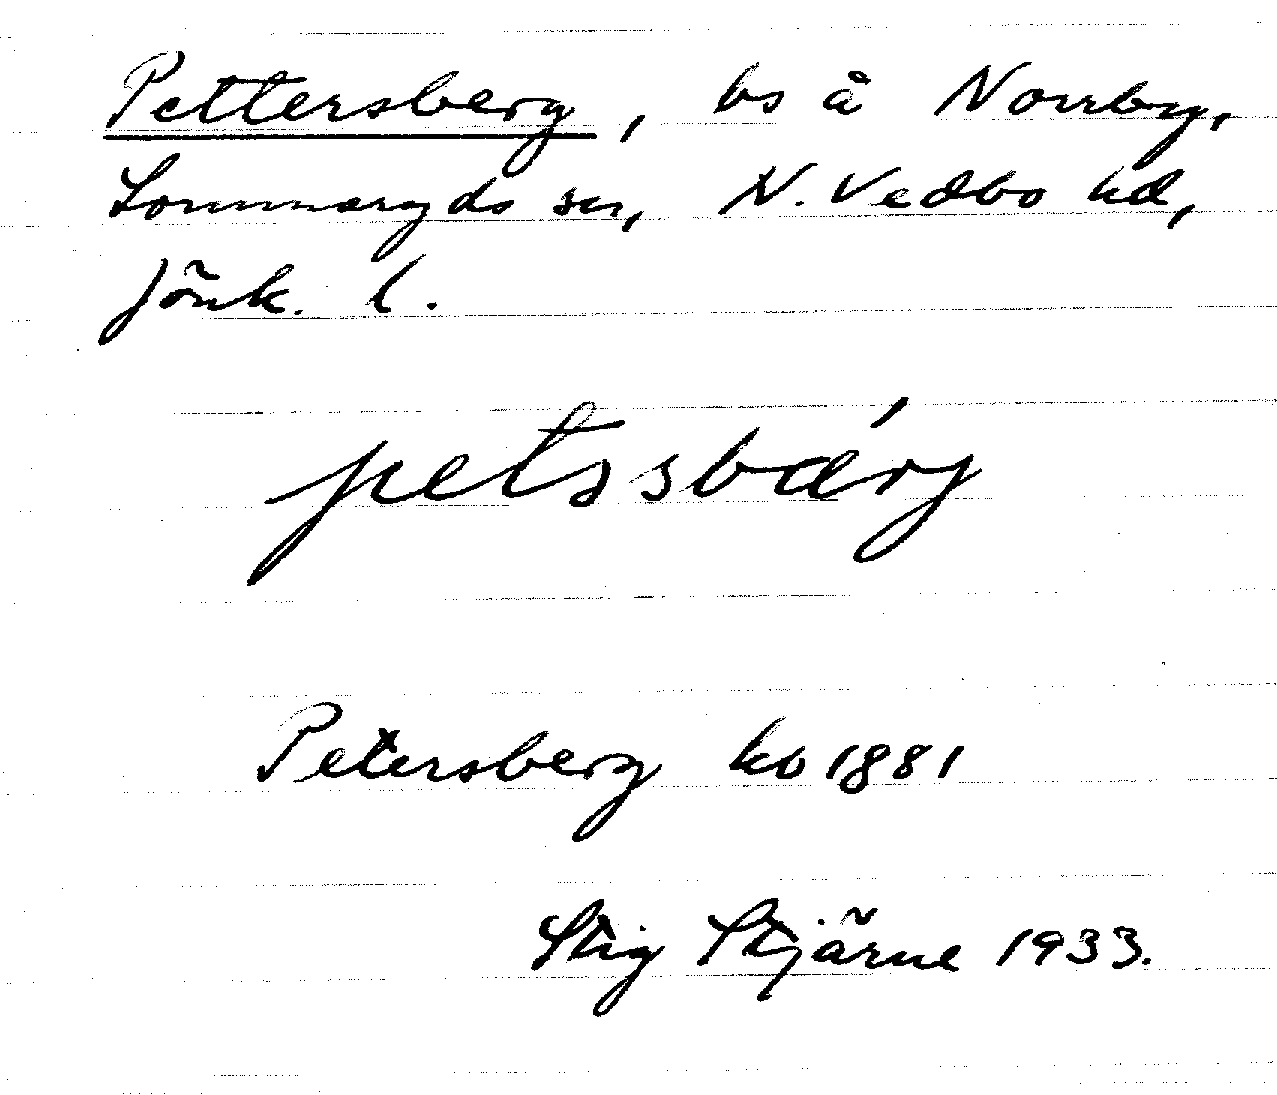 Pettersberg, bs å Norrby,
Lommaryds sn, N. Vedbo hd,
Jönk. l.
petssbǽrj
Petersberg kb 1881
Stig Stjärne 1933.